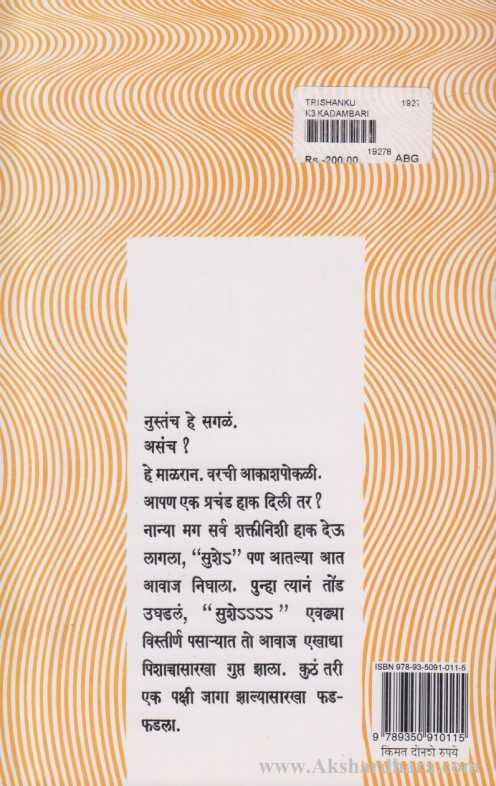 TRISHANKU 1927
K3 KADAMBARI
19278
Rs.-200.00 ABG
नुस्तंच हे सगळं.
असंच ?
हे माळरान. वरची आकाशपोकळी.
आपण एक प्रचंड हाक दिली तर ?
नान्या मग सर्व शक्तीनिशी हाक देऊ
लागला, “सुशेऽ” पण आतल्या आत
आवाज निघाला. पुन्हा त्यानं तोंड
उघडलं, “ सुशेऽऽऽऽ ” एवढ्या
विस्तीर्ण पसाऱ्यात तो आवाज एखाद्या
पिशाच्चासारखा गुप्त झाला. कुठं तरी
एक पक्षी जागा झाल्यासारखा फड-
फडला.
ISBN 978-93-5091-011-5
9 789350 910115
किंमत दोनशे रुपये